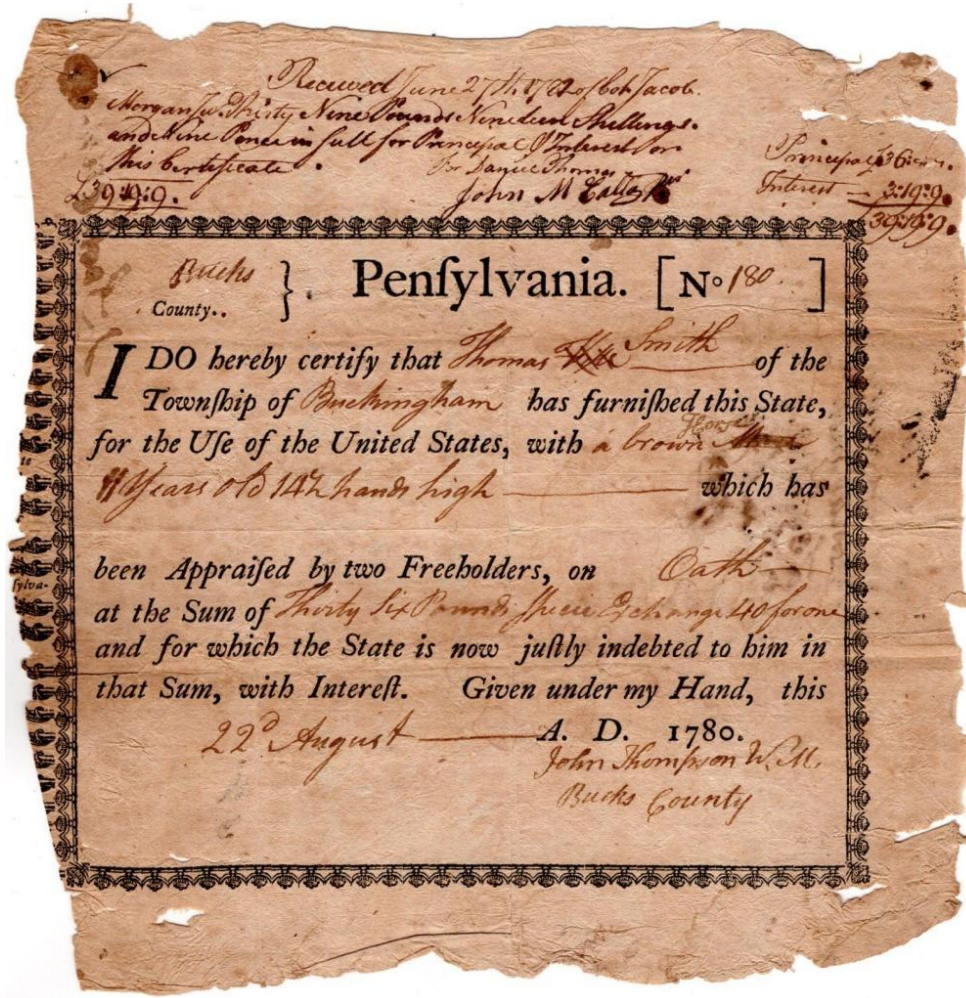 Received June 27th 1782 of Col. Jacob
Morgan Junr. Thirty Nine Pounds Nineteen Shillings
and Nine Pence in full for Principal & Interest on
this Certificate. For Daniel Thomas
£39.19.9. John M
Principal £36
Interest — 3:19:9
39:19:9
Bucks
County.. } Penſylvania. [No 180.]
I DO hereby certify that Thomas Smith of the
Townſhip of Buckingham has furniſhed this State,
for the Uſe of the United States, with a brown Horse
Years old 14½ hands high which has
been Appraiſed by two Freeholders, on Oath
ſylva-
at the Sum of Thirty Six Pounds Specie Exchange 40 for one
and for which the State is now juſtly indebted to him in
that Sum, with Intereſt. Given under my Hand, this
22d August A. D. 1780.
John Thompson W. M.
Bucks County